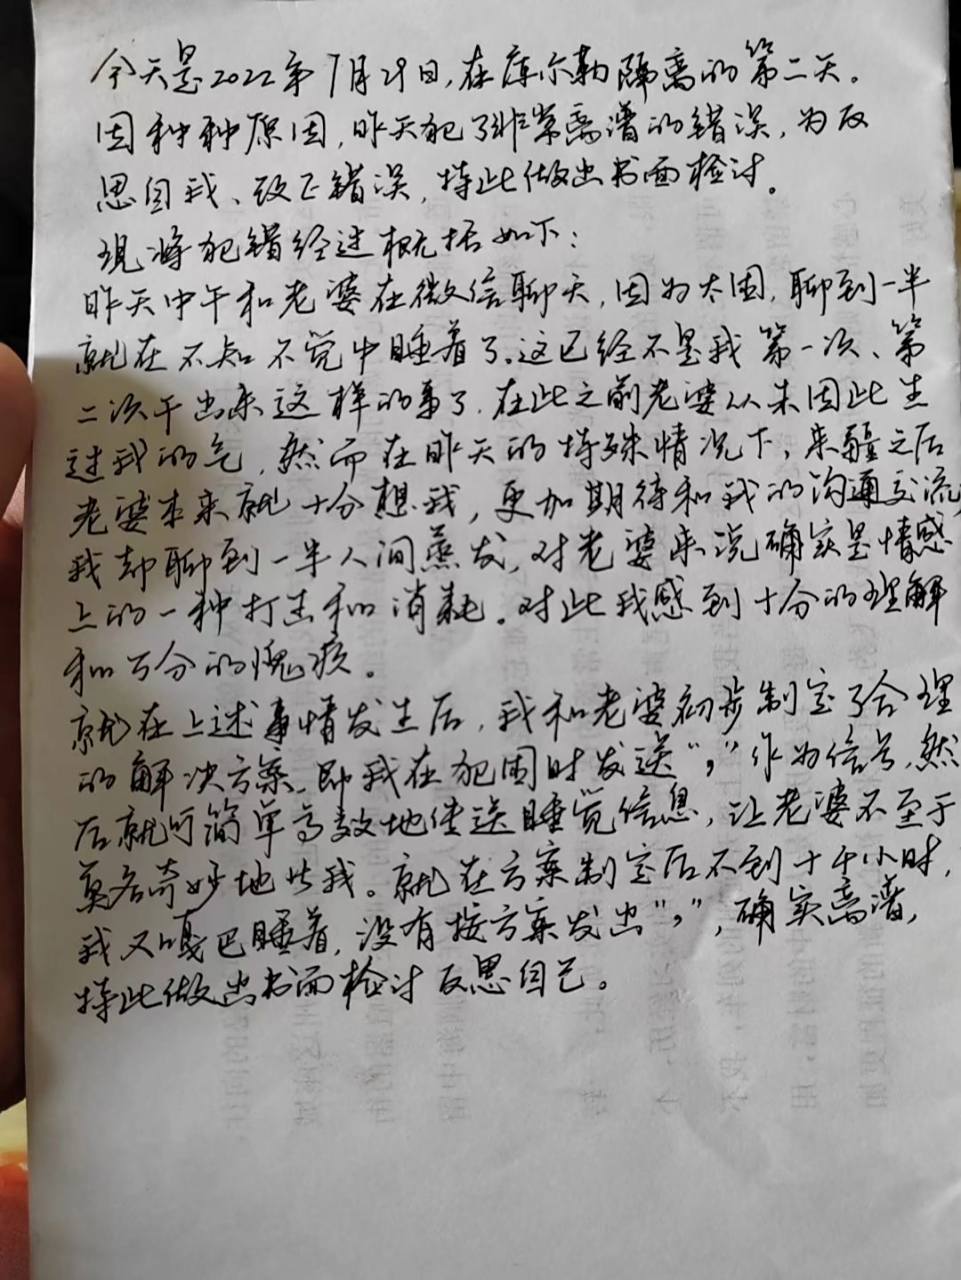 今天是2022年7月29日，在库尔勒隔离的第二天。
因种种原因，昨天犯了非常离谱的错误，为反
思自我、改正错误，特此做出书面检讨。
现将犯错经过概括如下：
昨天中午和老婆在微信聊天，因为太困，聊到一半
就在不知不觉中睡着了。这已经不是我第一次、第
二次干出来这样的事了。在此之前老婆从未因此生
过我的气，然而在昨天的特殊情况下，来疆之后
老婆本来就十分想我，更加期待和我的沟通交流，
我却聊到一半人间蒸发，对老婆来说确实是情感
上的一种打击和消耗。对此我感到十分的理解
和万分的愧疚。
就在上述事情发生后，我和老婆初步制定了合理
的解决方案，即我在犯困时发送“，”作为信号，然
后就可简单高效地传送睡觉信息，让老婆不至于
莫名奇妙地失我。就在方案制定后不到十个小时，
我又嘎巴睡着，没有按方案发出“，”，确实离谱，
特此做出书面检讨反思自己。